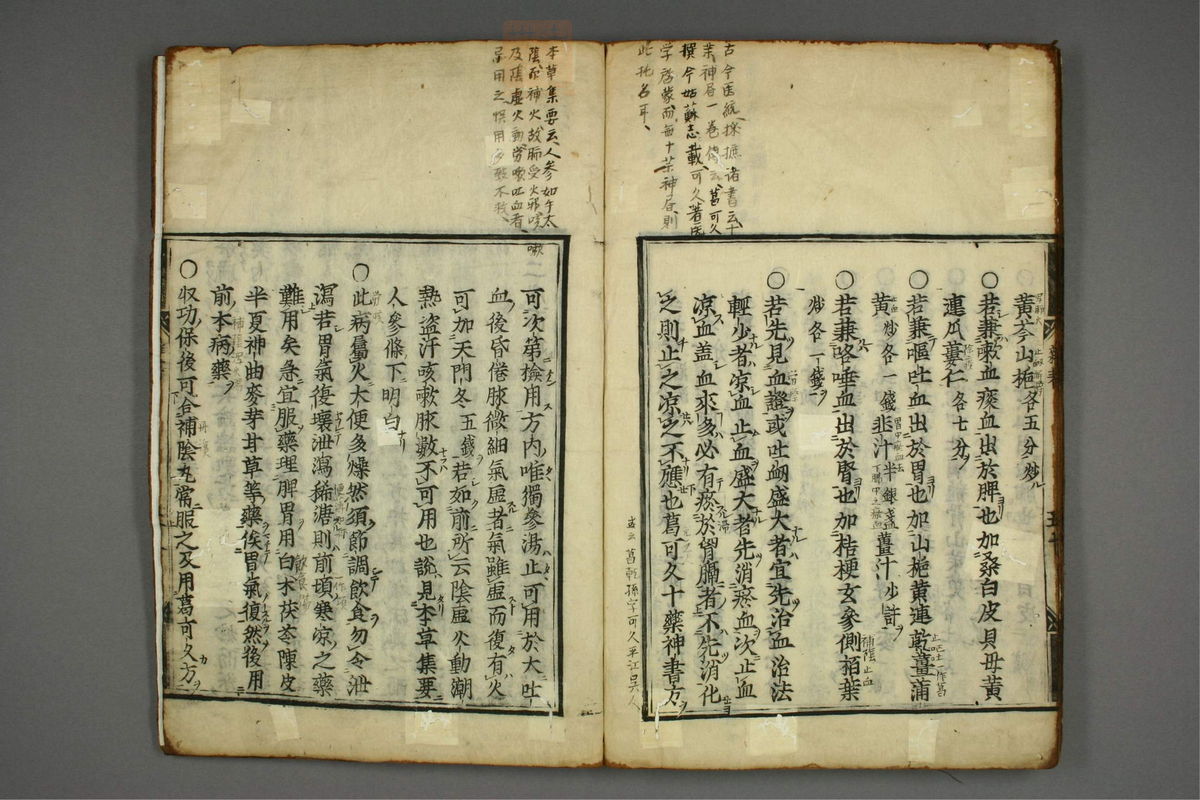 古今医統採摭諸書云十
薬神居一巻傳云葛可久
撰今姑蘇志載可久著医
学啓蒙而毎十薬神居則
此批名耳
黄芩山梔各五分炒
○若兼嗽血痰血出於脾也加桑白皮貝母黄
連瓜蔞仁各七分
○若兼嘔吐血出於胃也加山梔黄連乾薑蒲
黄炒各一錢韭汁半銀盞薑汁少許
○若兼咯唾血出於腎也加桔梗玄參側栢葉
炒各一錢
○若先見血證或吐衂盛大者宜先治血治法
輕少者凉血止血盛大者先消瘀血次止血
凉血蓋血來多必有瘀於胷膈者不先消化
之則止之凉之不應也葛可久十藥神書方
葛乾孫字可久平江呉人
本草集要云人參如午太
陰而補火故肺受火邪咳嗽
及陰虚火動勞嗽吐血者
忌用之悞用多致不救
可次第檢用方内唯獨參湯止可用於大吐
血後昏倦脉微細氣虚者氣雖虚而復有火
可加天門冬五錢若如前所云陰虚火動潮
熱盗汗咳嗽脉數不可用也說見本草集要
人參條下明白
○此病屬火大便多燥然須節調飲食勿令泄
瀉若胃氣復壊泄瀉稀溏則前項寒凉之藥
難用矣急宜服藥理脾胃用白术茯苓陳皮
半夏神曲麥芽甘草等藥俟胃氣復然後用
前本病藥
○収功保後可合補陰丸常服之及用葛可久方